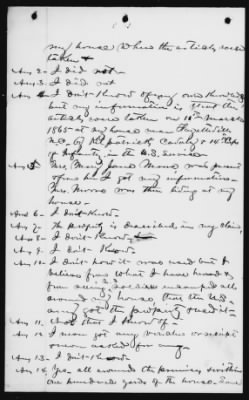 my house where the articles were
taken
Ans 2. I did not-
Ans 3. I did not
Ans 4 I don't Know of my own Knowledge
but my information is that the
articles were taken on 10th March
1865 at my house near Fayetteville
N.C. by Kilpatrick's Cavalry & 14th
of Infantry in the U.S. Service
Ans 5 Mrs. Mary Jane Monro was present
from her I got my information.
Mrs. Monro was then living at my
house-
Ans 6- I don't Know-
Ans 7- The property is described in my claim,
Ans 8- I don't Know-
Ans 9. I don't Know
Ans 10- I don't how it was used but I
believe from what I have heard &
from seeing soldiers encamped all
around my house, that the U.S.
army got the property & used it-
Ans 11. Not that I Know of-
Ans 12 I never got any voucher or receipt
never asked for any-
Ans 13- I don't Know
Ans 14 Yes all around the premises within
one hundred yards of the house-